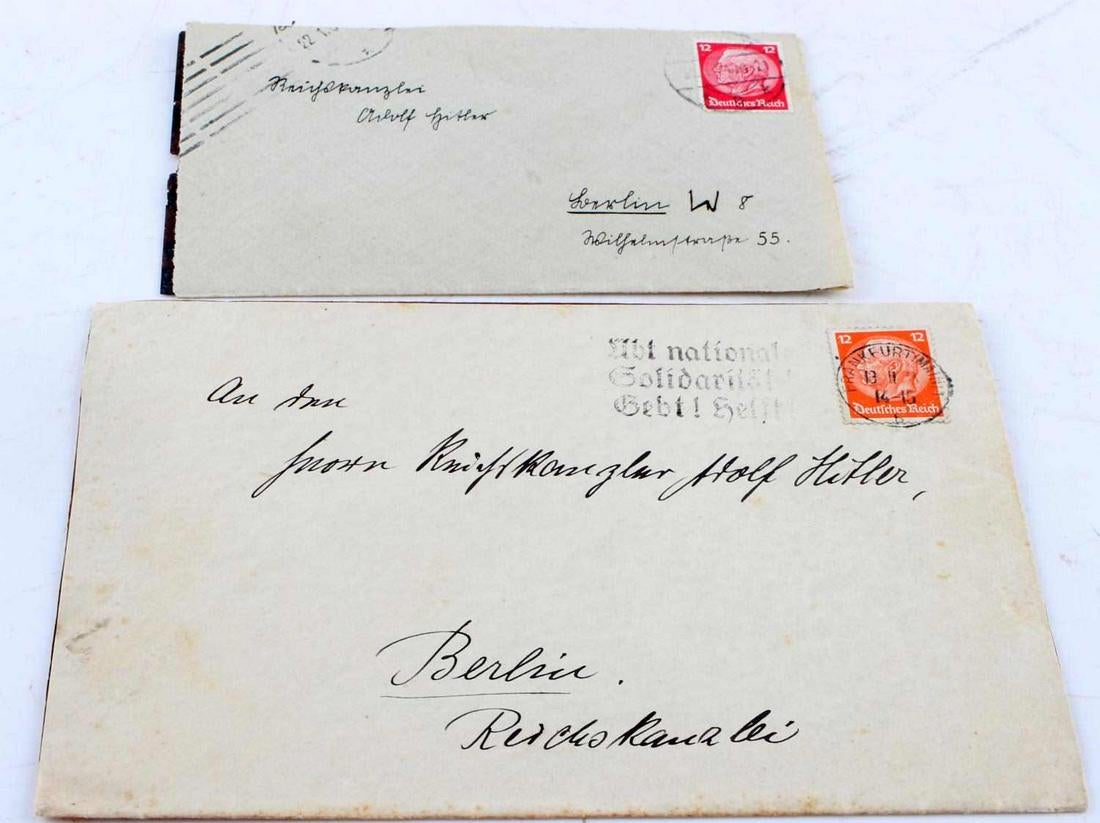 22.1.
12 12
Deutsches Reich
Reichskanzlei
Adolf Hitler
Berlin W 8
Wilhelmstraße 55.
Übt nationale
Solidarität!
Gebt! Helft!
12 12
Deutsches Reich
FRANKFURT (MAIN)
13 11
14-15
An den
Herrn Reichskanzler Adolf Hitler,
Berlin.
Reichskanzlei